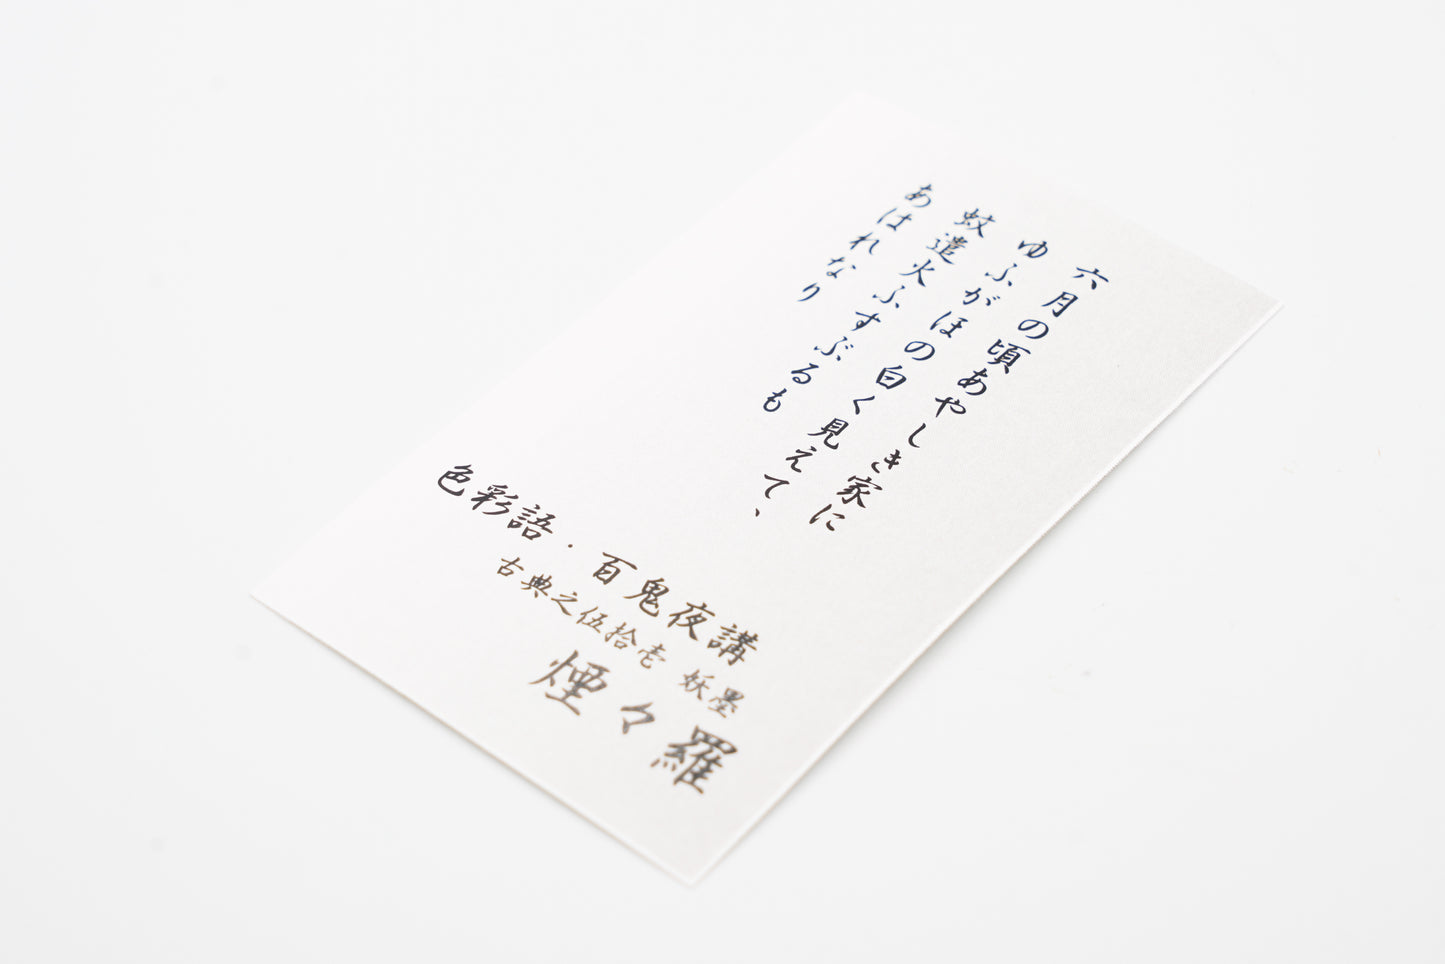 六月の頃あやしき家に
ゆふがほの白く見えて、
蚊遣火ふすぶるも
あはれなり
色彩語・百鬼夜講
古典之伍拾壱 妖墨
煙々羅